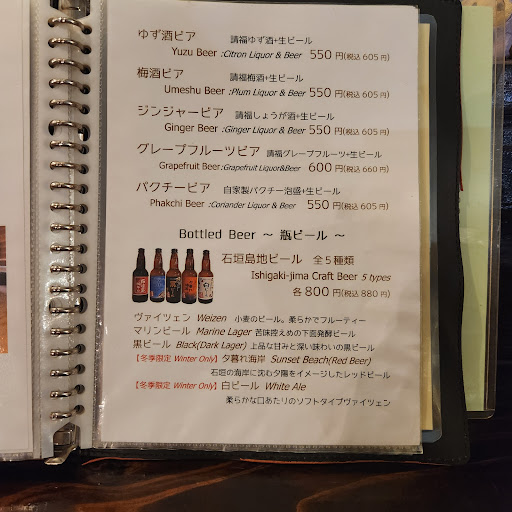 ゆず酒ビア 請福ゆず酒+生ビール
Yuzu Beer :Citron Liquor & Beer 550 円(税込 605 円)
梅酒ビア 請福梅酒+生ビール
Umeshu Beer :Plum Liquor & Beer 550 円(税込 605 円)
ジンジャービア 請福しょうが酒+生ビール
Ginger Beer :Ginger Liquor & Beer 550 円(税込 605 円)
グレープフルーツビア 請福グレープフルーツ+生ビール
Grapefruit Beer:Grapefruit Liquor&Beer 600 円(税込 660 円)
パクチービア 自家製パクチー泡盛+生ビール
Phakchi Beer :Coriander Liquor & Beer 550 円(税込 605 円)
Bottled Beer ～ 瓶ビール ～
石垣島地ビール 全５種類
Ishigaki-jima Craft Beer 5 types
各 800 円(税込 880 円)
ヴァイツェン Weizen 小麦のビール。柔らかでフルーティー
マリンビール Marine Lager 苦味控えめの下面発酵ビール
黒ビール Black(Dark Lager) 上品な甘みと深い味わいの黒ビール
【冬季限定 Winter Only】夕暮れ海岸 Sunset Beach(Red Beer)
石垣の海岸に沈む夕陽をイメージしたレッドビール
【冬季限定 Winter Only】白ビール White Ale
柔らかな口あたりのソフトタイプヴァイツェン